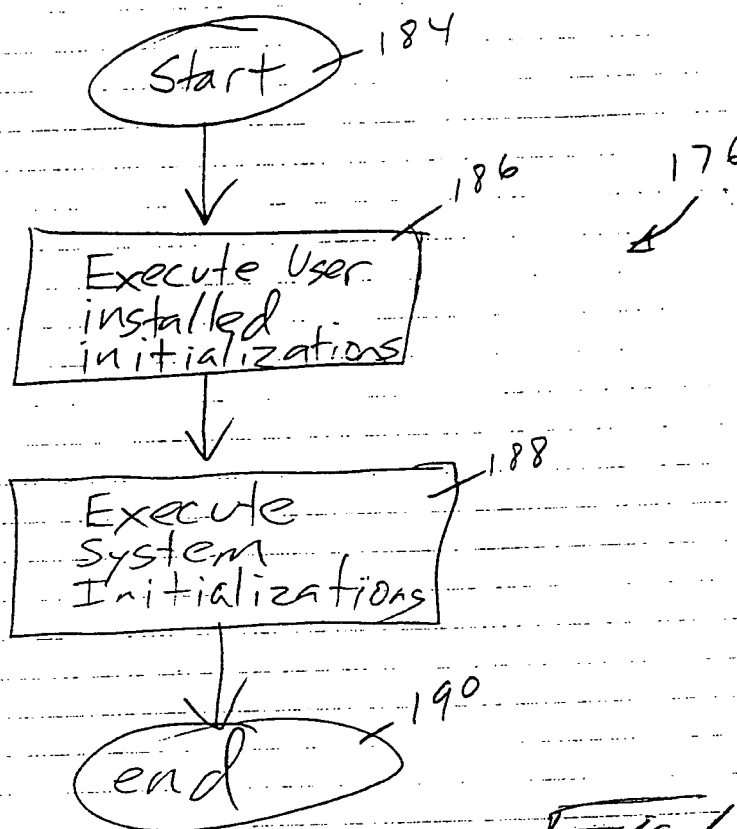 Start
184
176
186
Execute User
installed
initializations
188
Execute
System
Initializations
190
end